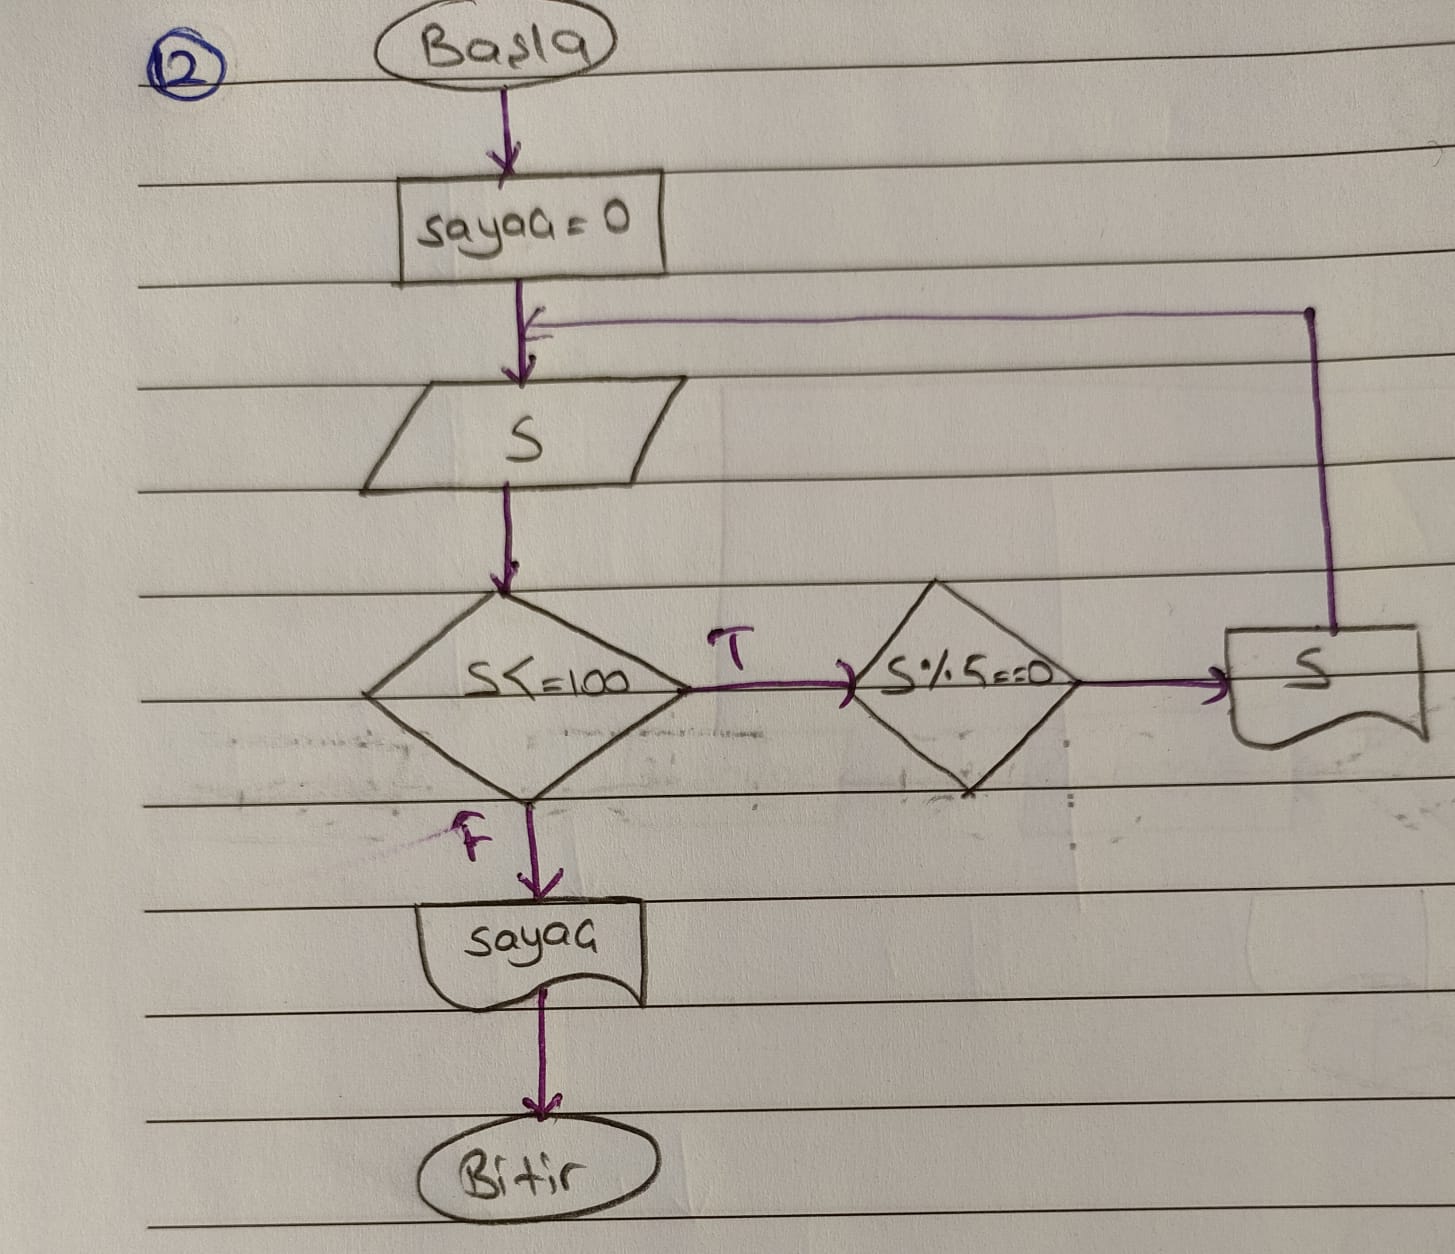 12
Başla
sayaç = 0
S
S<=100
T
S%5==0
S
F
sayaç
Bitir